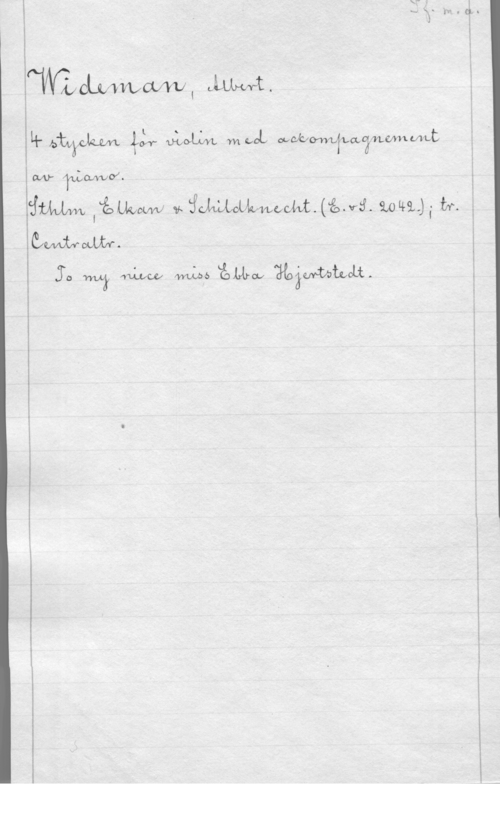 Sf. m. a.
Wideman, Albert.
4 stycken för violin med ackompagnement
av piano.
Sthlm, Elkan & Schildknecht. (E. & S. 2042.); tr.
Centraltr.
To my niece miss Ebba Hjertstedt.